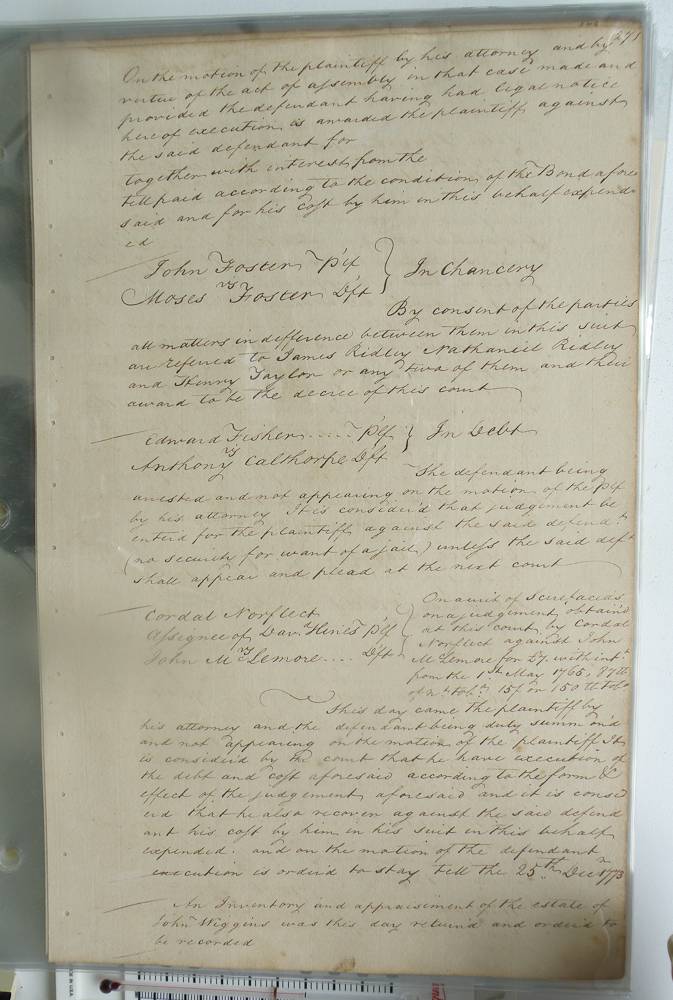 271
On the motion of the plaintiff by his attorney and by
virtue of the act of assembly in that case made and
provided the defendant having had legal notice
hereof execution is awarded the plaintiff against
the said defendant for
together with interest from the
till paid according to the condition of the Bond afore
said and for his cost by him in this behalf expend
ed
John Foster Plf
vs
In Chancery
Moses Foster Dft
By consent of the parties
all matters in difference between them in this suit
are referred to James Ridley Nathaniel Ridley
and Henry Taylor or any two of them and their
award to be the decree of this court
Edward Fisher ..... Plf
vs
In Debt
Anthony Calthorpe Dft
The defendant being
arrested and not appearing on the motion of the Plf
by his attorney It is consider'd that judgement be
enter'd for the plaintiff against the said defendt
(no security for want of a jail) unless the said deft
shall appear and plead at the next court
Cordal Norfleet
Assignee of Davd Hines Plf
vs
John McLemore .... Dft
On a writ of Scirefacias
on a judgement obtain'd
at this court by Cordal
Norfleet against John
McLemore for £7. with intt
from the 1st May 1765, 87 lb
of nt tobo 15/ or 150 lb tobo
This day came the plaintiff by
his attorney and the defendant being duly summon'd
and not appearing on the motion of the plaintiff It
is consider'd by the court that he have execution of
the debt and cost aforesaid according to the form &
effect of the judgement aforesaid and it is consid
er'd that he also recover against the said defend
ant his cost by him in his suit in this behalf
expended. and on the motion of the defendant
execution is order'd to stay till the 25th Decr 1773
An Inventory and appraisement of the estate of
John Wiggins was this day return'd and order'd to
be recorded